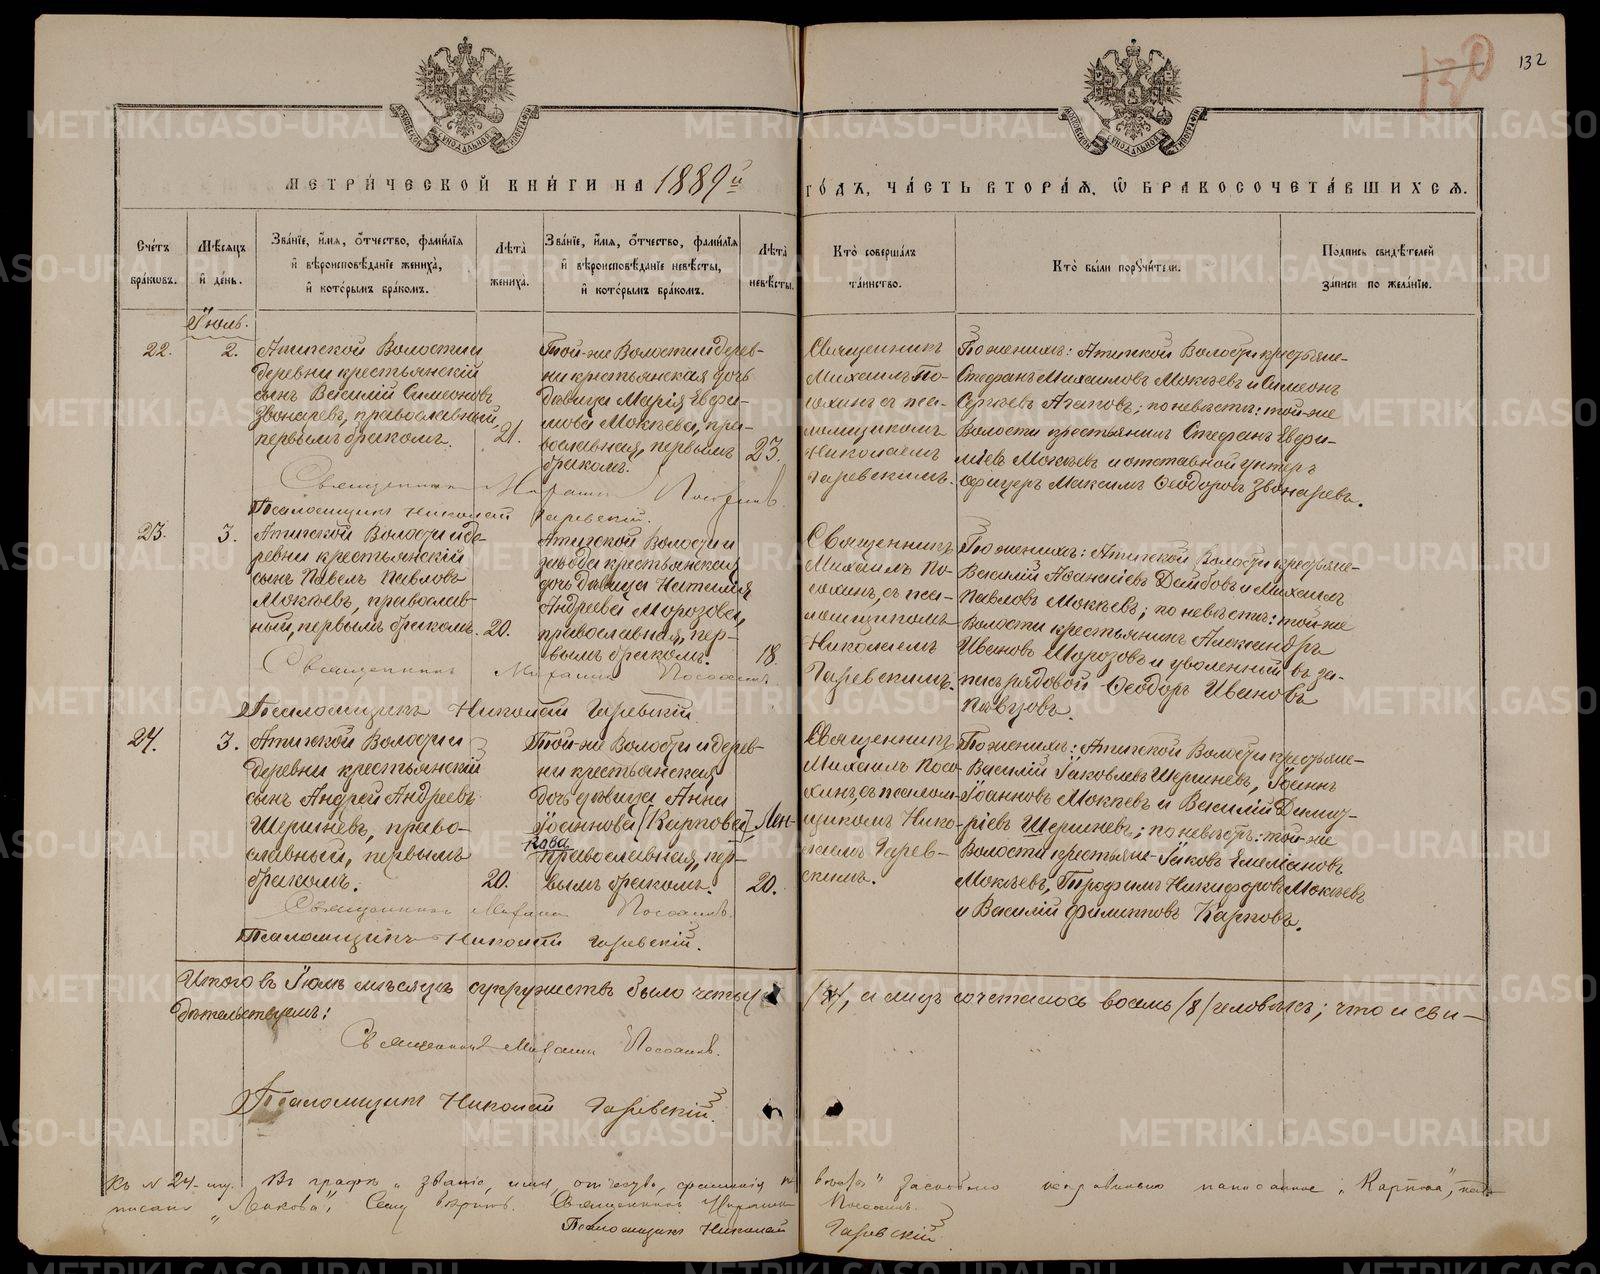 132
МЕТРИ́ЧЕСКОЙ КНИ́ГИ НА 1889й ГО́ДЪ, ЧА́СТЬ ВТОРА́Я, Ѿ БРАКОСОЧЕТА́ВШИХСЯ.
Сче́тъ бра́ковъ.
Мѣ́сяцъ и́ де́нь.
Зва́нїе, и́мя, о́тчество, фами́лїя и́ вѣроисповѣ́данїе жениха̀, и́ кото́рымъ бра́комъ.
Лѣта̀ жениха̀.
Зва́нїе, и́мя, о́тчество, фами́лїя и́ вѣроисповѣ́данїе невѣ́сты, и́ кото́рымъ бра́комъ.
Лѣта̀ невѣ́сты.
Кто̀ соверша́лъ та́инство.
Кто̀ бы́ли порꙋчи́тели.
Подпись свидѣ́телей за́писи по жела́нїю.
Іюль.
22.
2.
Атигской Волости и
деревни крестьянскій
сынъ Василій Симеоновъ
Звонаревъ, православный,
первымъ бракомъ.
21.
Той-же Волости и дерев-
ни крестьянская дочь
дѣвица Марія Евфи-
міева Мокѣева, пра-
вославная, первымъ
бракомъ.
23.
Священникъ
Михаилъ По-
сохинъ съ пса-
ломщикомъ
Николаемъ
Гаревскимъ.
По женихѣ: Атигской Волости крестьяне
Стефанъ Михаиловъ Мокѣевъ и Симеонъ
Сергѣевъ Агаповъ; по невѣстѣ: той-же
Волости крестьянинъ Стефанъ Евфи-
міевъ Мокѣевъ и отставной унтеръ
офицеръ Максимъ Ѳеодоровъ Звонаревъ.
Священникъ Михаилъ Посохинъ
Псаломщикъ Николай Гаревскій.
23.
3.
Атигской Волости и де-
ревни крестьянскій
сынъ Павелъ Павловъ
Мокѣевъ, православ-
ный, первымъ бракомъ.
20.
Атигской Волости и
завода крестьянская
дочь дѣвица Наталия
Андреева Морозова,
православная, пер-
вымъ бракомъ.
18.
Священникъ
Михаилъ По-
сохинъ, съ пса-
ломщикомъ
Николаемъ
Гаревскимъ.
По женихѣ: Атигской Волости крестьяне
Василій
и Михаилъ
Павловъ Мокѣевъ; по невѣстѣ: той-же
Волости крестьянинъ Александръ
Ивановъ Морозовъ и уволенный въ за-
пасъ рядовой Ѳеодоръ Ивановъ
Священникъ Михаилъ Посохинъ
Псаломщикъ Николай Гаревскій
24.
3.
Атигской Волости и
деревни крестьянскій
сынъ Андрей Андреевъ
Шершневъ, право-
славный, первымъ
бракомъ.
20.
Той-же Волости и дерев-
ни крестьянская
дочь дѣвица Анна
Іоаннова [Карпова],
православная, пер-
вымъ бракомъ.
20.
Священникъ
Михаилъ Посо-
хинъ, съ псалом-
щикомъ Нико-
лаемъ Гарев-
скимъ.
По женихѣ: Атигской Волости крестьяне
Василій Іаковлевъ Шершневъ, Іоаннъ
Іоанновъ Мокѣевъ и Василій Дмит-
ріевъ Шершневъ; по невѣстѣ: той-же
Волости крестьяне Іаковъ Емеліановъ
Мокѣевъ, Трофимъ Никифоровъ Мокѣевъ
и Василій Филипповъ Карповъ.
Священникъ Михаилъ Посохинъ.
Псаломщикъ Николай Гаревскій.
Итого въ Іюлѣ мѣсяцѣ супружествъ было четыре /4/, а лицъ сочеталось восемь /8/ человѣкъ; что и сви-
дѣтельствуемъ:
Священникъ Михаилъ Посохинъ.
Псаломщикъ Николай Гаревскій
Къ № 24-му. Въ графѣ „званіе, имя, отчество, фамилія
написанное „Карпова",
Сему вѣрить. Священникъ Михаилъ Посохинъ.
Псаломщикъ Николай Гаревскій
METRIKI.GASO-URAL.RU